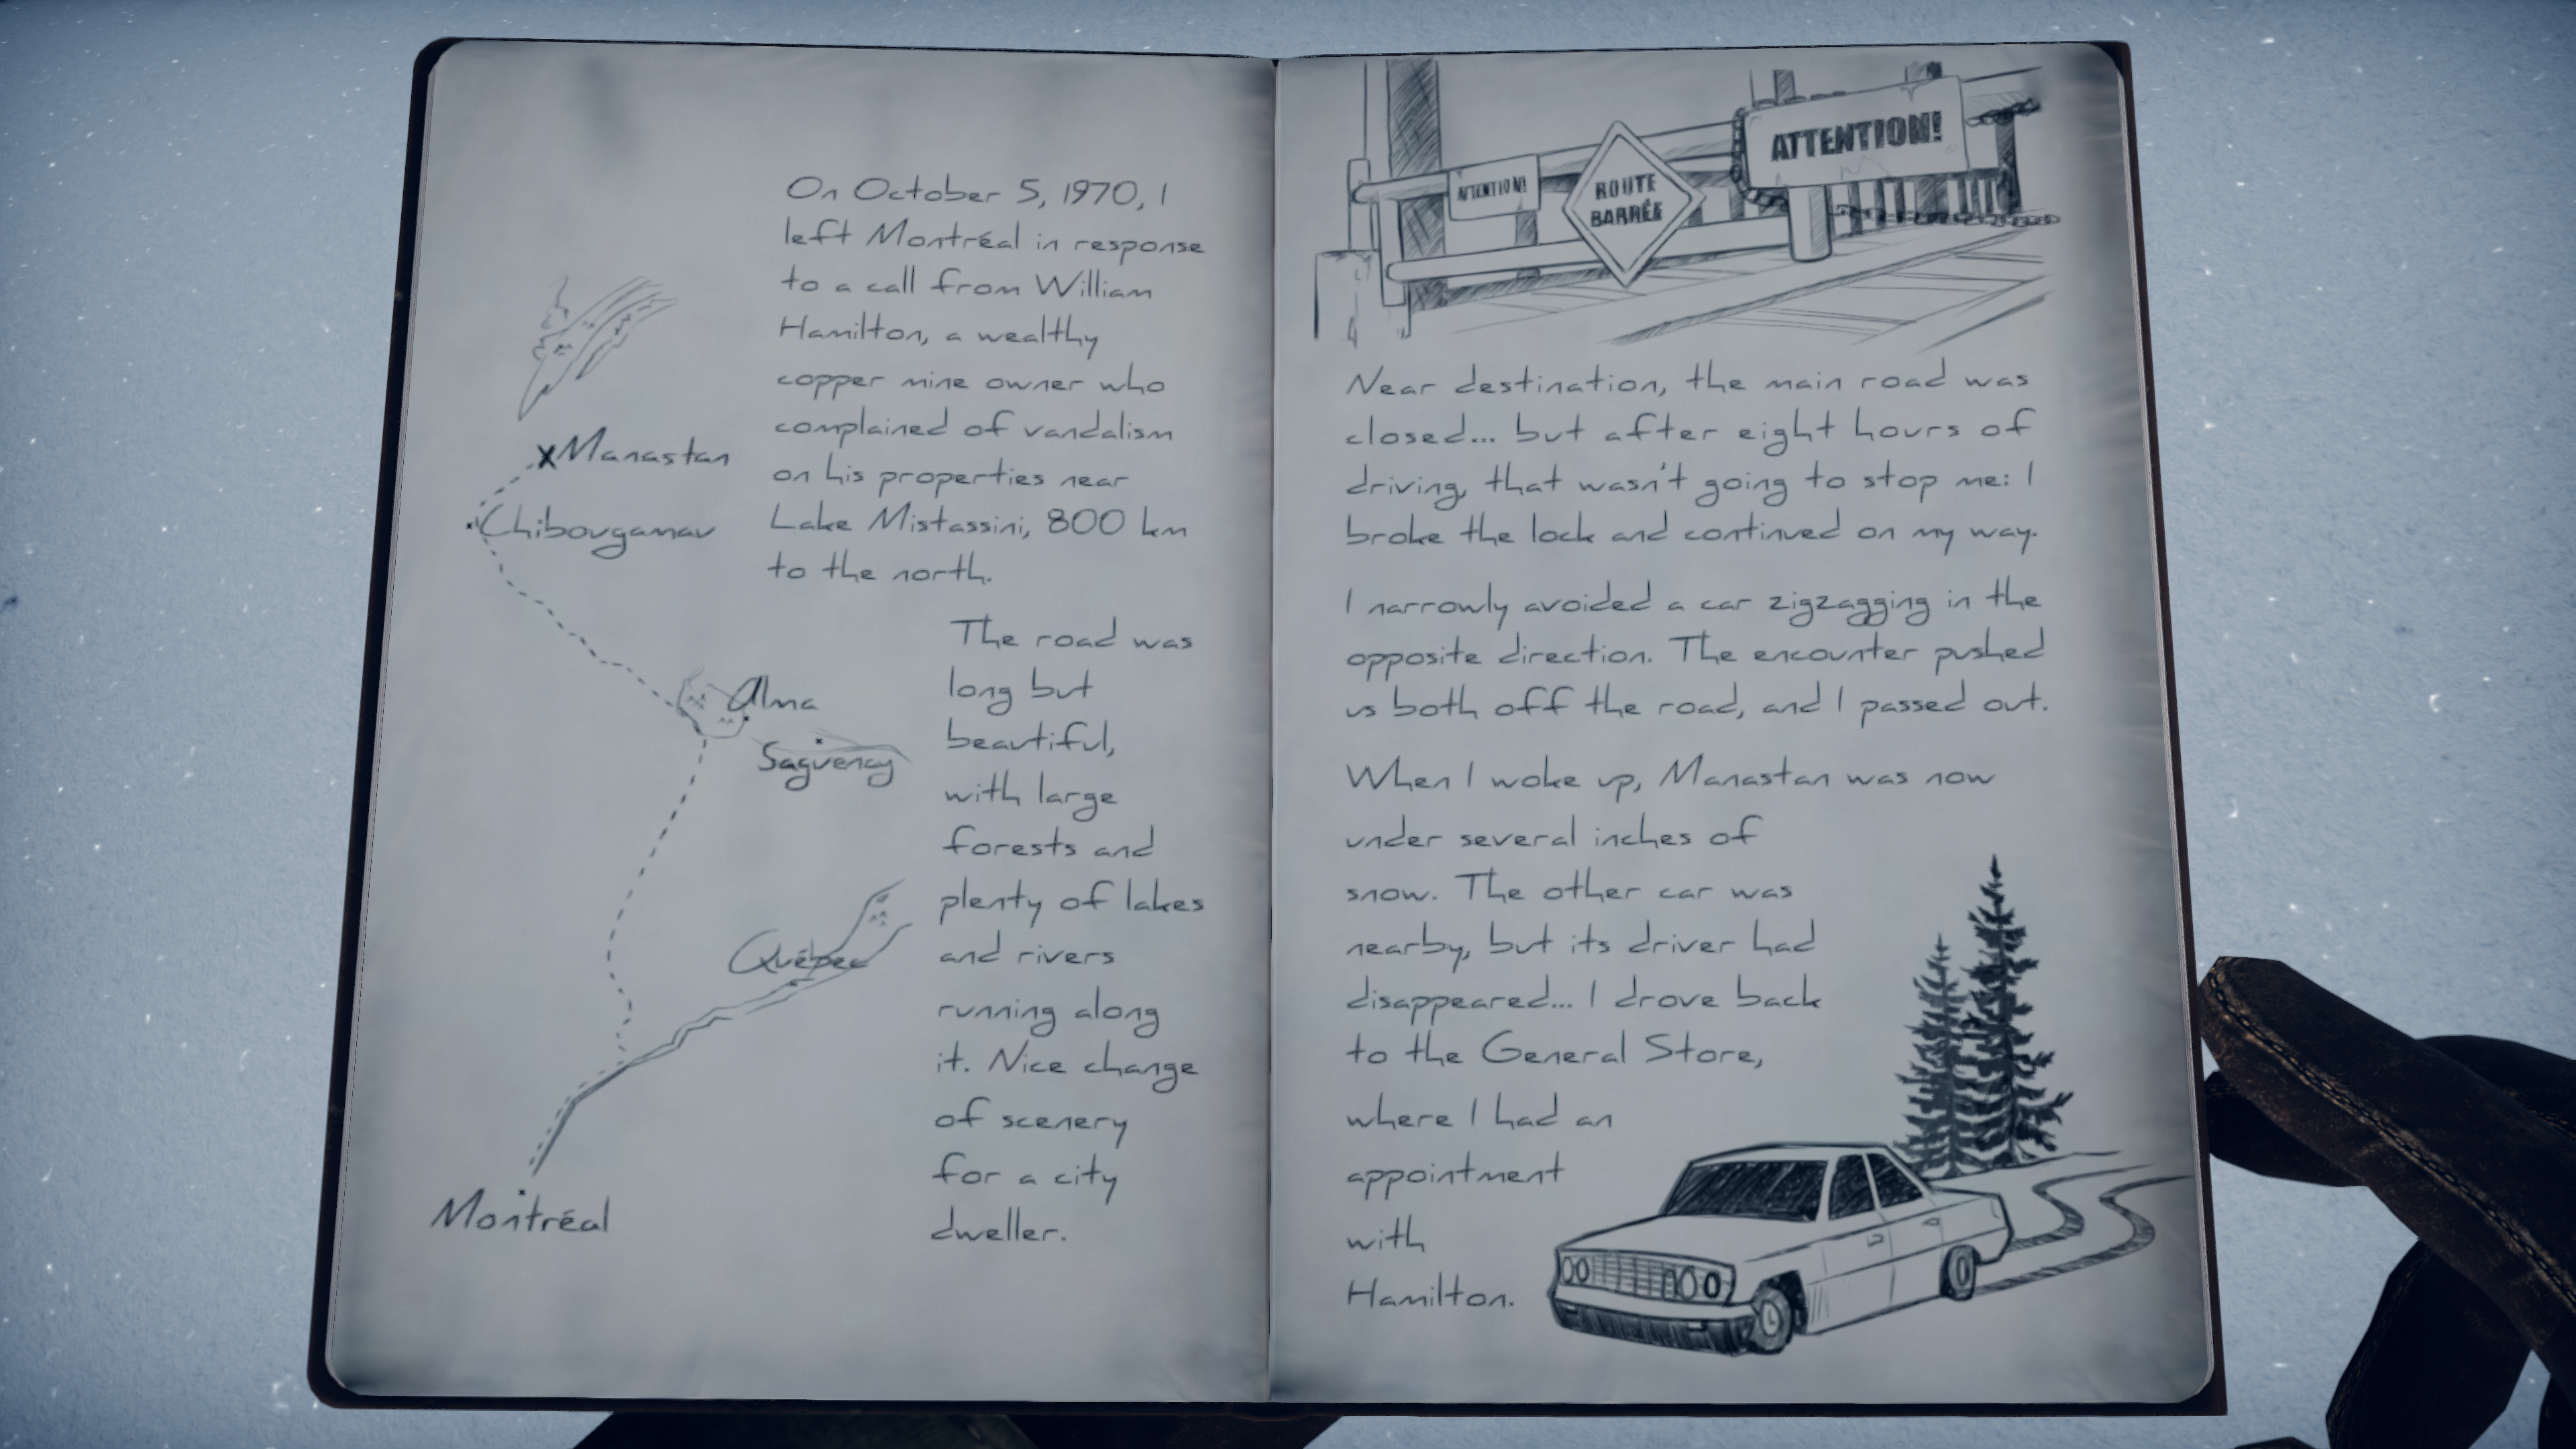 On October 5, 1970, I
left Montréal in response
to a call from William
Hamilton, a wealthy
copper mine owner who
complained of vandalism
on his properties near
Lake Mistassini, 800 km
to the north.
The road was
long but
beautiful,
with large
forests and
plenty of lakes
and rivers
running along
it. Nice change
of scenery
for a city
dweller.
XManastan
Chibougamau
Alma
Saguenay
Québec
Montréal
ATTENTION!
ROUTE
BARRÉE
ATTENTION!
Near destination, the main road was
closed... but after eight hours of
driving, that wasn't going to stop me: I
broke the lock and continued on my way.
I narrowly avoided a car zigzagging in the
opposite direction. The encounter pushed
us both off the road, and I passed out.
When I woke up, Manastan was now
under several inches of
snow. The other car was
nearby, but its driver had
disappeared... I drove back
to the General Store,
where I had an
appointment
with
Hamilton.